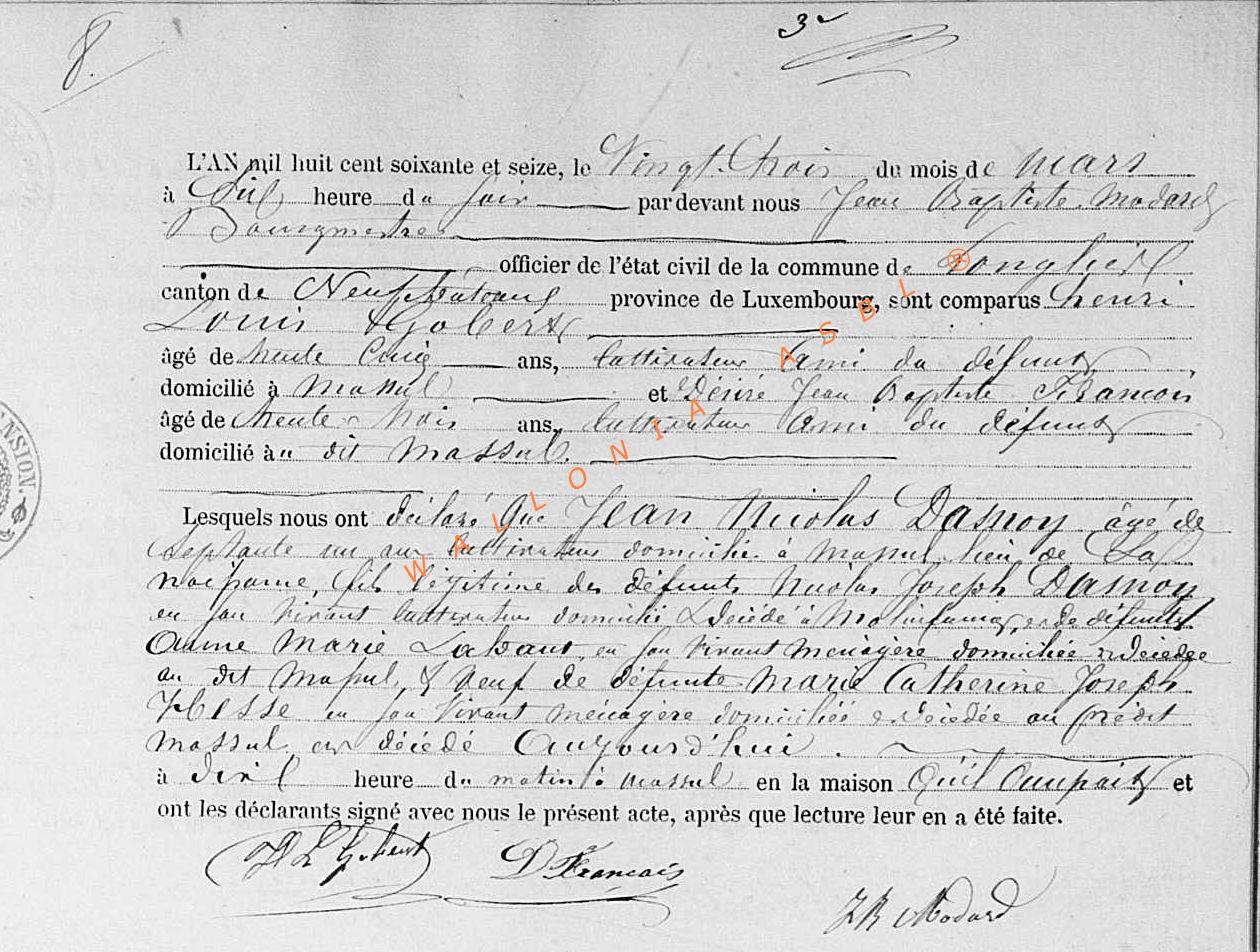 8.
3e
L'AN mil huit cent soixante et seize, le Vingt-Trois du mois de mars
à Six heure du soir par devant nous Jean Baptiste Modard
Bourgmestre
officier de l'état civil de la commune de Longlier
canton de Neufchateau province de Luxembourg, sont comparus henri
Louis Gobert
âgé de trente Cinq ans, Cultivateur Ami du défunt
domicilié à Massul et Désiré Jean Baptiste François
âgé de trente trois ans, Cultivateur Ami du défunt
domicilié au dit Massul.
Lesquels nous ont déclaré que Jean Nicolas Dasnoy âgé de
Septante un ans Cultivateur domicilié à Massul, lieu de
fils légitime des défunts Nicolas Joseph Dasnoy
en son vivant Cultivateur domicilié & décédé à Molinfaing, et de défunte
Anne Marie en son vivant Ménagère domiciliée & décédée
au dit Massul, & veuf de défunte Marie Catherine Joseph
Hesse en son vivant ménagère domiciliée & décédée au prédit
Massul, est décédé Aujourd'hui.
à heure du matin à Massul en la maison Qu'il Occupait et
ont les déclarants signé avec nous le présent acte, après que lecture leur en a été faite.
H L Gobert D François
JB Modard
WALLONIA ASBL
ENSION.